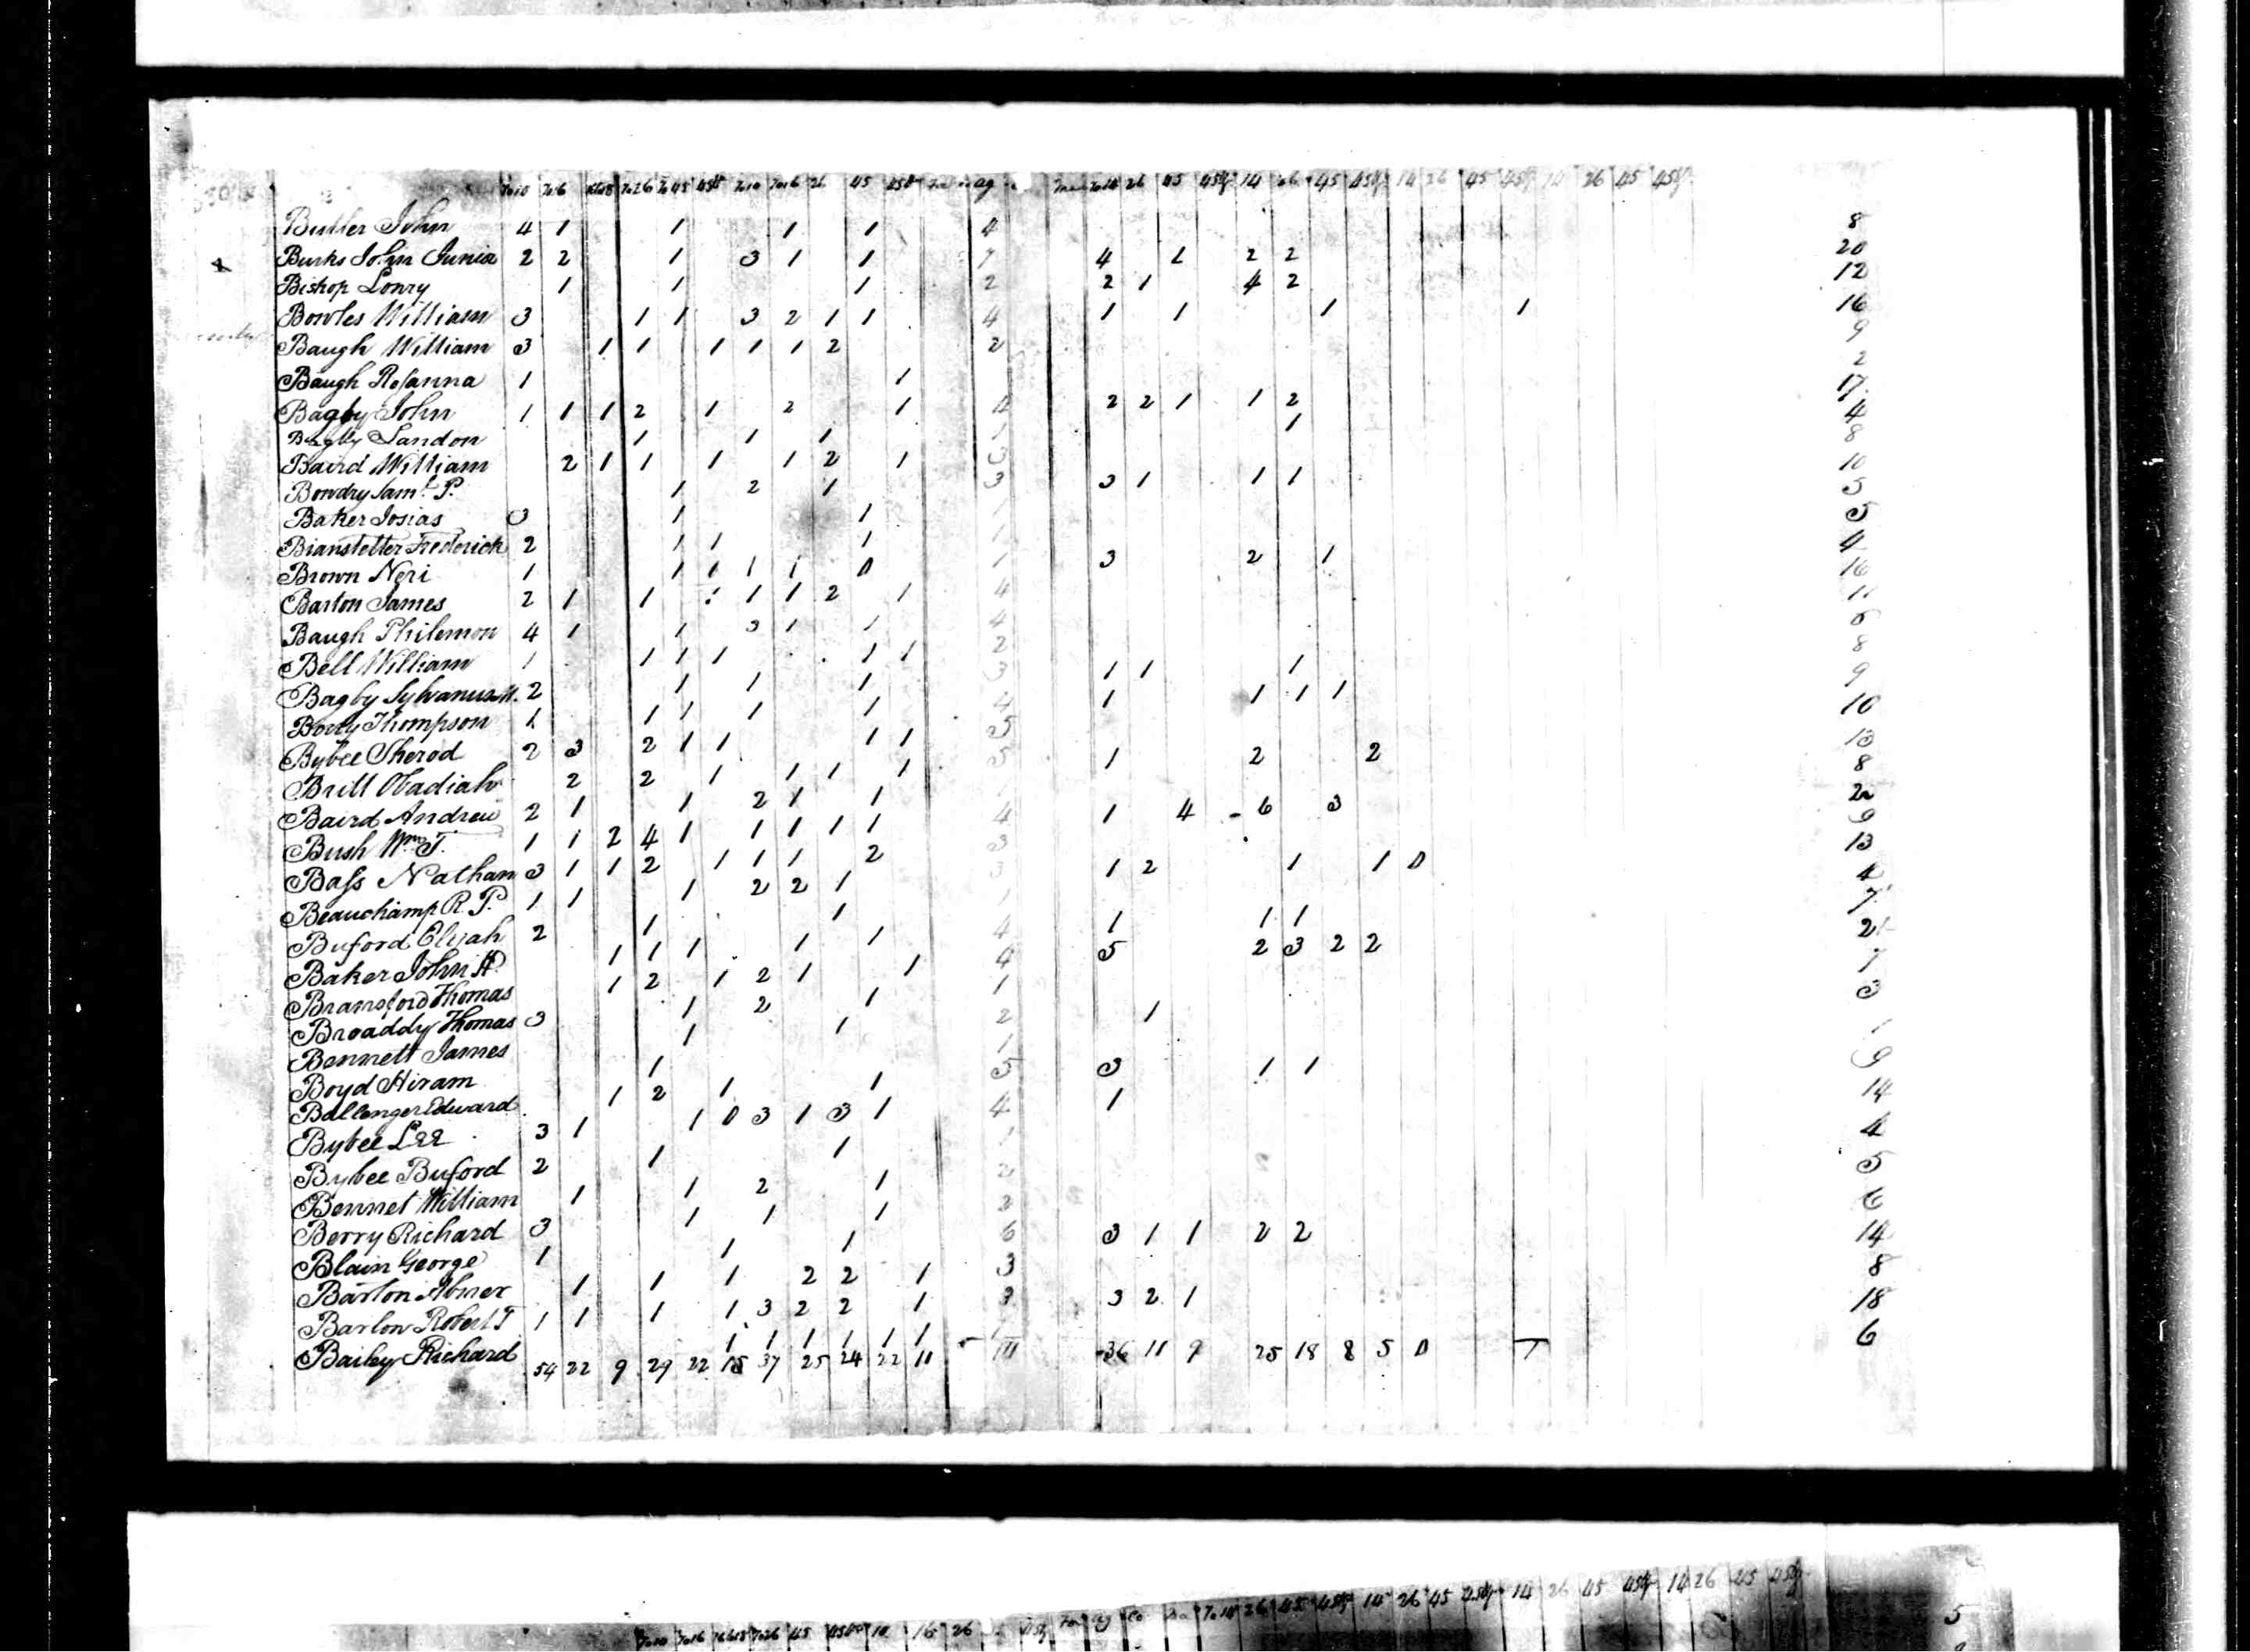 To10 To16 16to18 To26 To45 45up To10 To16 26 45 45up ag To14 26 45 45up 14 26 45 45up 14 26 45 45up 14 26 45 45up
Butler John 4 1 1 1 1 4 8
Burks John Junia 2 2 1 3 1 1 7 4 1 2 2 20
Bishop Lonry 1 1 1 2 2 1 4 2 12
Bowles William 3 1 1 3 2 1 1 4 1 1 1 1 16
Baugh William 3 1 1 1 1 1 2 2 9
Baugh Rosanna 1 1 2
Bagby John 1 1 1 2 1 2 1 4 2 2 1 1 2 17
Bagby Landon 1 1 1 1 4
Baird William 2 1 1 1 1 2 1 3 8
Bowdry Saml. P. 1 2 1 3 3 1 1 1 10
Baker Josias 3 1 1 1 5
Bianstetter Frederick 2 1 1 1 1 5
Brown Neri 1 1 1 1 1 0 1 3 2 1 4
Barton James 2 1 1 1 1 1 2 1 4
Baugh Philemon 4 1 1 3 1 1 4 11
Bell William 1 1 1 1 1 1 2
Bagby Sylvanus M. 2 1 1 1 3 1 1 1 8
Thompson 1 1 1 1 1 4 1 1 1 1 9
Bybee Sherod 2 3 2 1 1 1 1 5 10
Brill Obadiah 2 2 1 1 1 1 5 1 2 2 13
Baird Andrew 2 1 1 2 1 1 8
Bush Wm. T. 1 1 2 4 1 1 1 1 1 4 1 4 6 3
Bass Nathan 3 1 1 2 1 1 1 2 3 9
Beauchamp R. P. 1 1 1 2 2 1 3 1 2 1 1 0 13
Buford Elijah 2 1 1 1 4
Baker John H. 1 1 1 1 1 4 1 1 1 7
Bransford Thomas 1 2 1 2 1 1 4 5 2 3 2 2 21
Broaddy Thomas 3 1 2 1 1 7
Bennett James 1 1 2 1 3
Boyd Hiram 1 1 1
Ballenger Edward 1 2 1 1 5 3 1 1 9
Bybee Lee 3 1 1 0 3 1 3 1 4 1 14
Bybee Buford 2 1 1 1 4
Bennet William 1 1 2 1 2 5
Berry Richard 3 1 1 1 2 6
Blain George 1 1 1 6 3 1 1 2 2 14
Barton Abner 1 1 1 2 2 1 3 8
Barlow Robert T 1 1 1 1 3 2 2 1 3 3 2 1 18
Bailey Richard 1 1 1 1 1 1 1 6
54 22 9 29 22 15 37 25 24 22 11 111 36 11 9 25 18 8 5 0 1
To10 To16 16to18 To26 45 45up 10 16 26 To14 26 45 45up 14 26 45 45up 14 26 45 45up 14 26 45 45up
5